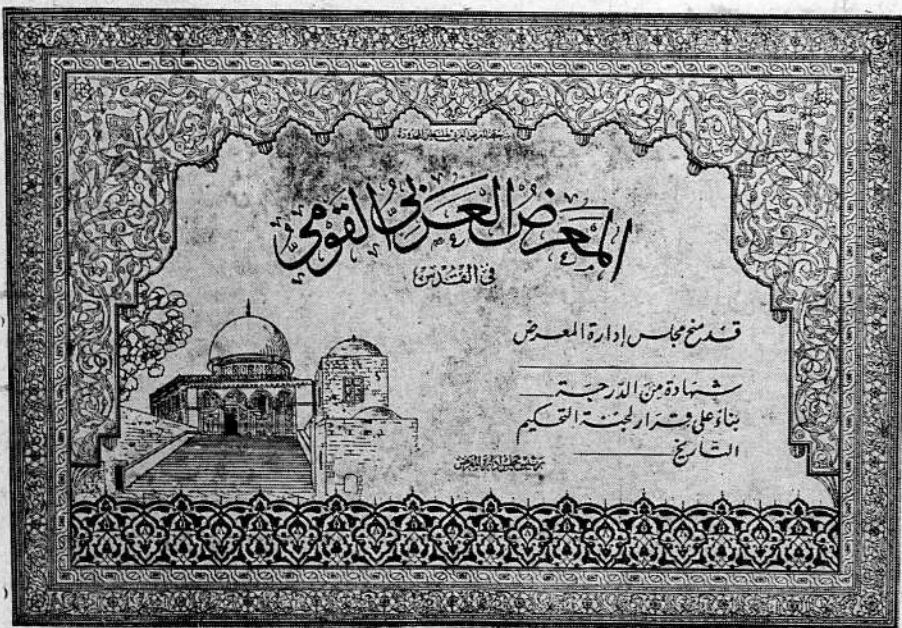 المعرض العربي القومي
في القدس
قد منح مجلس إدارة المعرض
شهادة من الدرجة
بناءً على قرار لجنة التحكيم
التاريخ
رئيس مجلس إدارة المعرض